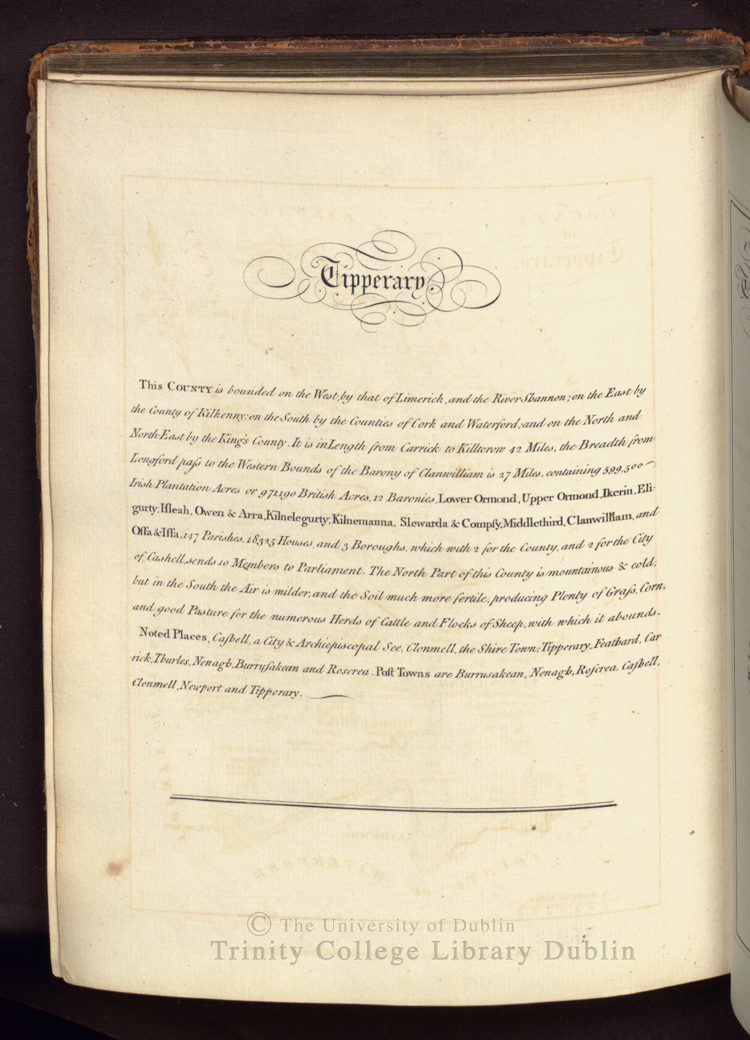 Tipperary.
This COUNTY is bounded on the West, by that of Limerick, and the River Shannon; on the East by
the County of Kilkenny; on the South by the Counties of Cork and Waterford; and on the North and
North-East by the King's County. It is in Length from Carrick to Killcrow 42 Miles, the Breadth from
Longford paſs to the Western Bounds of the Barony of Clanwilliam is 27 Miles, containing 599,500
Irish Plantation Acres or 971190 British Acres, 12 Baronies, Lower Ormond, Upper Ormond, Ikerin, Eli-
gurty, Iſleah, Owen & Arra, Kilnelegurty, Kilnemanna, Slewarda & Compſy, Middlethird, Clanwilliam, and
Offa & Iffa, 147 Parishes, 18325 Houses, and 3 Boroughs, which with 2 for the County, and 2 for the City
of Cashell, sends 10 Members to Parliament. The North Part of this County is mountainous & cold,
but in the South the Air is milder, and the Soil much more fertile, producing Plenty of Graſs, Corn,
and good Pasture for the numerous Herds of Cattle and Flocks of Sheep, with which it abounds.
Noted Places, Caſhell, a City & Archiepiscopal See, Clonmell, the Shire Town; Tipperary, Feathard, Car
rick, Thurles, Nenagh, Burruſakean and Roscrea. Poſt Towns are Burrusakean, Nenagh, Roſcrea, Caſhell,
Clonmell, Newport and Tipperary.
© The University of Dublin
Trinity College Library Dublin